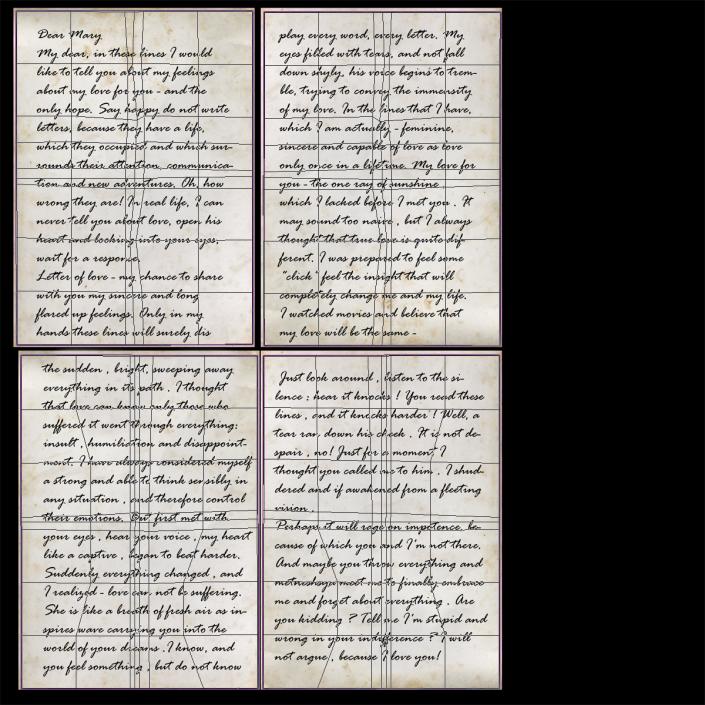 Dear Mary
My dear, in these lines I would
like to tell you about my feelings
about my love for you - and the
only hope. Say happy do not write
letters, because they have a life,
which they occupied and which sur-
rounds their attention, communica-
tion and new adventures. Oh, how
wrong they are! In real life, I can
never tell you about love, open his
heart and looking into your eyes,
wait for a response.
Letter of love - my chance to share
with you my sincere and long
flared up feelings. Only in my
hands these lines will surely dis
play every word, every letter. My
eyes filled with tears, and not fall
down shyly, his voice begins to trem-
ble, trying to convey the immensity
of my love. In the lines that I have,
which I am actually - feminine,
sincere and capable of love as love
only once in a lifetime. My love for
you - the one ray of sunshine
which I lacked before I met you . It
may sound too naive , but I always
thought that true love is quite dif-
ferent. I was prepared to feel some
"click" feel the insight that will
completely change me and my life.
I watched movies and believe that
my love will be the same -
the sudden , bright, sweeping away
everything in its path . I thought
that love can know only those who
suffered it went through everything:
insult , humiliation and disappoint-
ment. I have always considered myself
a strong and able to think sensibly in
any situation , and therefore control
their emotions. But first met with
your eyes , hear your voice , my heart
like a captive , began to beat harder.
Suddenly everything changed , and
I realized - love can not be suffering.
She is like a breath of fresh air as in-
spires wave carrying you into the
world of your dreams . I know, and
you feel something , but do not know
Just look around , listen to the si-
lence : hear it knocks ! You read these
lines , and it knocks harder ! Well, a
tear ran down his cheek . It is not de-
spair , no! Just for a moment, I
thought you called me to him . I shud-
dered and if awakened from a fleeting
vision .
Perhaps it will rage on impotence, be-
cause of which you and I'm not there.
And maybe you throw everything and
metnoshsya meet me to finally embrace
me and forget about everything . Are
you kidding ? Tell me I'm stupid and
wrong in your indifference ? I will
not argue , because I love you!